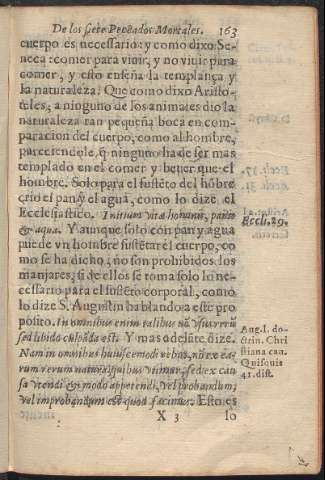 De los siete Peccados Mortales. 163
cuerpo es necessario: y como dixo Se-
neca: comer para viuir, y no viuir para
comer, y esto enseña la templança y
la naturaleza. Que como dixo Aristo-
teles; a ninguno de los animales dio la
naturaleza tan pequeña boca en com-
paracion del cuerpo, como al hombre,
pareciendole, q̃ ninguno ha de ser mas
templado en el comer y beuer que el
hombre. Solo para el sustẽto del hõbre
crio el pan y el agua, como lo dize el
Ecclesiastico. Initium vitæ hominis, panis
& aqua. Y aunque solo con pan y agua
puede vn hombre sustẽtar el cuerpo, co
mo se ha dicho, no son prohibidos los
manjares, si de ellos se toma solo lo ne-
cessario para el sustẽto corporal, como
lo dize S. Augustin hablando a este pro
posito. In omnibus enim talibus nõ vsus rerũ
sed libido culpãda est. Y mas adelãte dize.
Nam in omnibus huiuscemodi rebus, nõ ex ea-
rum rerum natura, quibus vtimur, sed ex cau
sa vtendi & modo appetendi, vel probandum,
vel improbandum est quod facimus. Esto es
X 3 lo
Eccli. 29.
Aug. l. do-
ctrin. Chri
stiana cau.
Quisquis
41. dist.